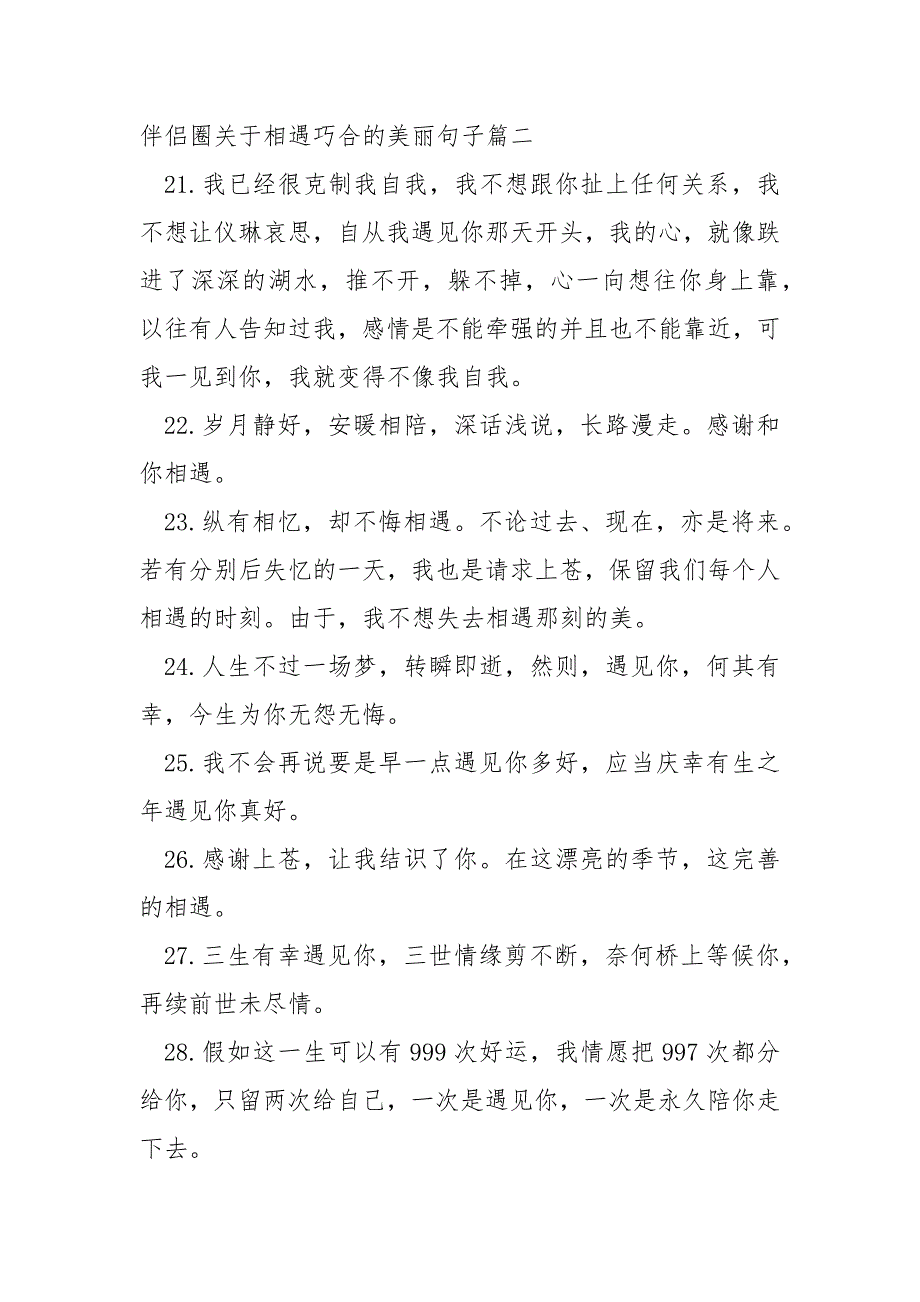 伴侣圈关于相遇巧合的美丽句子篇二
21.我已经很克制我自我，我不想跟你扯上任何关系，我
不想让仪琳哀思，自从我遇见你那天开头，我的心，就像跌
进了深深的湖水，推不开，躲不掉，心一向想往你身上靠，
以往有人告知过我，感情是不能牵强的并且也不能靠近，可
我一见到你，我就变得不像我自我。
22.岁月静好，安暖相陪，深话浅说，长路漫走。感谢和
你相遇。
23.纵有相忆，却不悔相遇。不论过去、现在，亦是将来。
若有分别后失忆的一天，我也是请求上苍，保留我们每个人
相遇的时刻。由于，我不想失去相遇那刻的美。
24.人生不过一场梦，转瞬即逝，然则，遇见你，何其有
幸，今生为你无怨无悔。
25.我不会再说要是早一点遇见你多好，应当庆幸有生之
年遇见你真好。
26.感谢上苍，让我结识了你。在这漂亮的季节，这完善
的相遇。
27.三生有幸遇见你，三世情缘剪不断，奈何桥上等候你，
再续前世未尽情。
28.假如这一生可以有999次好运，我情愿把997次都分
给你，只留两次给自己，一次是遇见你，一次是永久陪你走
下去。